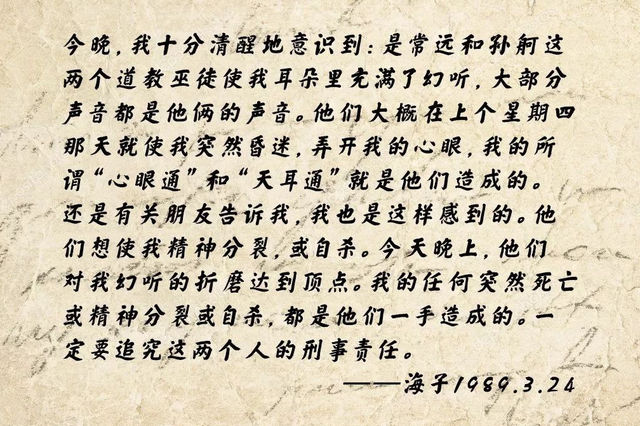 今晚，我十分清醒地意识到：是常远和孙舸这
两个道教巫徒使我耳朵里充满了幻听，大部分
声音都是他俩的声音。他们大概在上个星期四
那天就使我突然昏迷，弄开我的心眼，我的所
谓“心眼通”和“天耳通”就是他们造成的。
还是有关朋友告诉我，我也是这样感到的。他
们想使我精神分裂，或自杀。今天晚上，他们
对我幻听的折磨达到顶点。我的任何突然死亡
或精神分裂或自杀，都是他们一手造成的。一
定要追究这两个人的刑事责任。
——海子1989.3.24